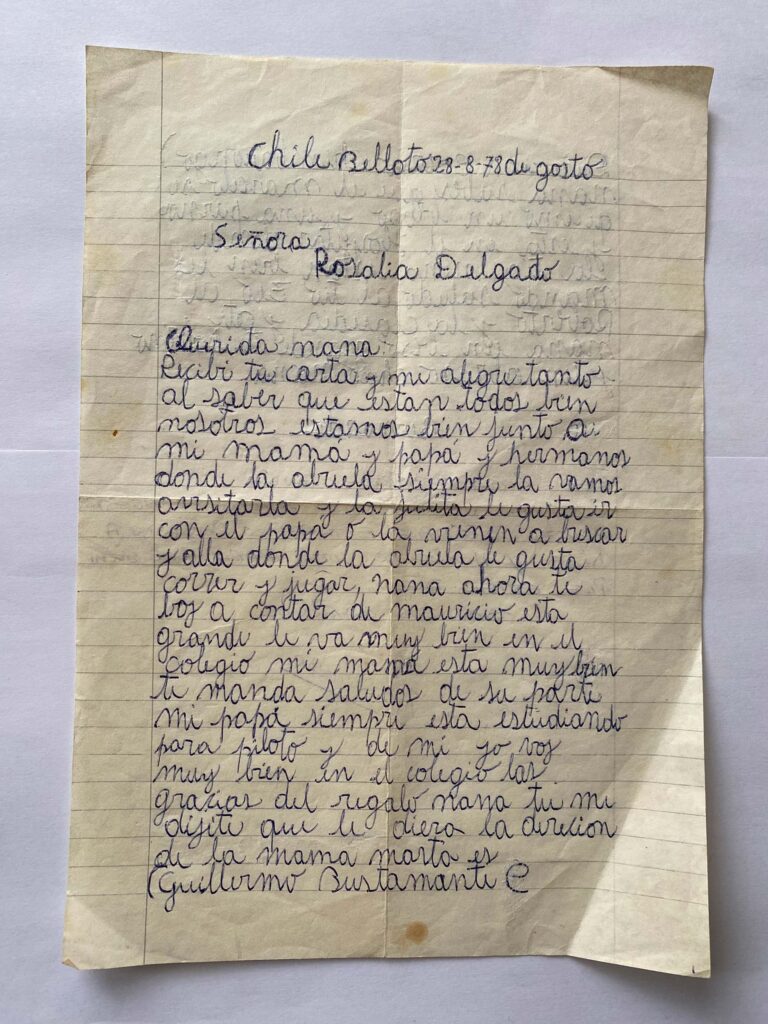 Chile Belloto 28-8-78 de gosto
Señora
Rosalia Delgado
Querida nana
Recibi tu carta y mi alegre tanto
al saber que estan todos bien
nosotros estamos bien junto a
mi mamá y papá y hermanos
donde la abuela siempre la vamos
avisitarla y la julita le gusta ir
con el papá o la vienen a buscar
y alla donde la abuela le gusta
correr y jugar, nana ahora te
boy a contar de mauricio esta
grande le va muy bien en el
colegio mi mama esta muy bien
te manda saludos de su parte
mi papá siempre esta estudiando
para piloto y de mi yo voy
muy bien en el colegio las
gracias del regalo nana tu mi
dijite que le diera la direcion
de la mama marta es
(Guillermo Bustamante